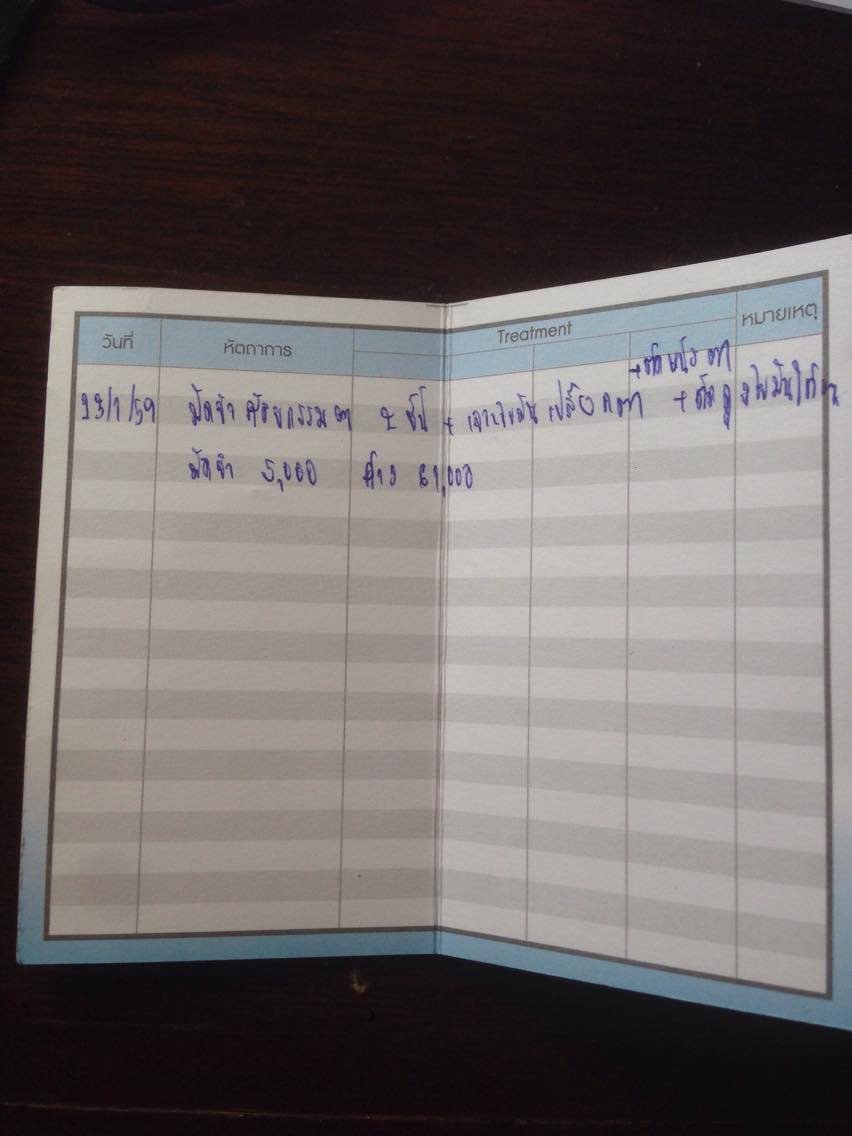 วันที่ หัตถาการ Treatment หมายเหตุ
+ตัด ตา
23/1/59 มัดจำ ศัลยกรรมตา 2 ชั้น + เอาไขมันเปลือกตา + ตัดถุงไขมันใต้ตา
มัดจำ 5,000 ค้าง 61,000